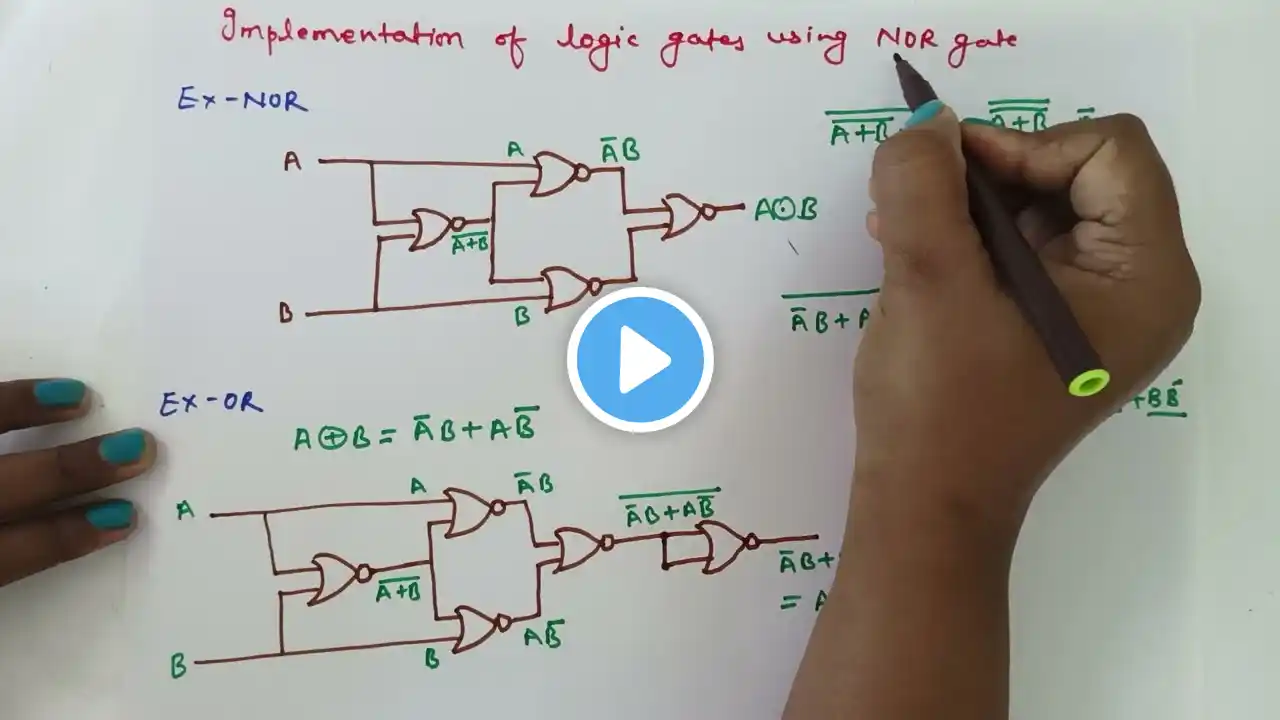 Implementation of logic gates using NOR gate
Ex-NOR
A
A
A̅B
A+B̅
A̅+̅B̅
A⊙B
B
B
A̅B+A
+BB̅
EX-OR
A⊕B = A̅B+AB̅
A
A
A̅B
A̅B̅+̅A̅B̅
A̅+̅B̅
A̅B+
= A
B
B
AB̅